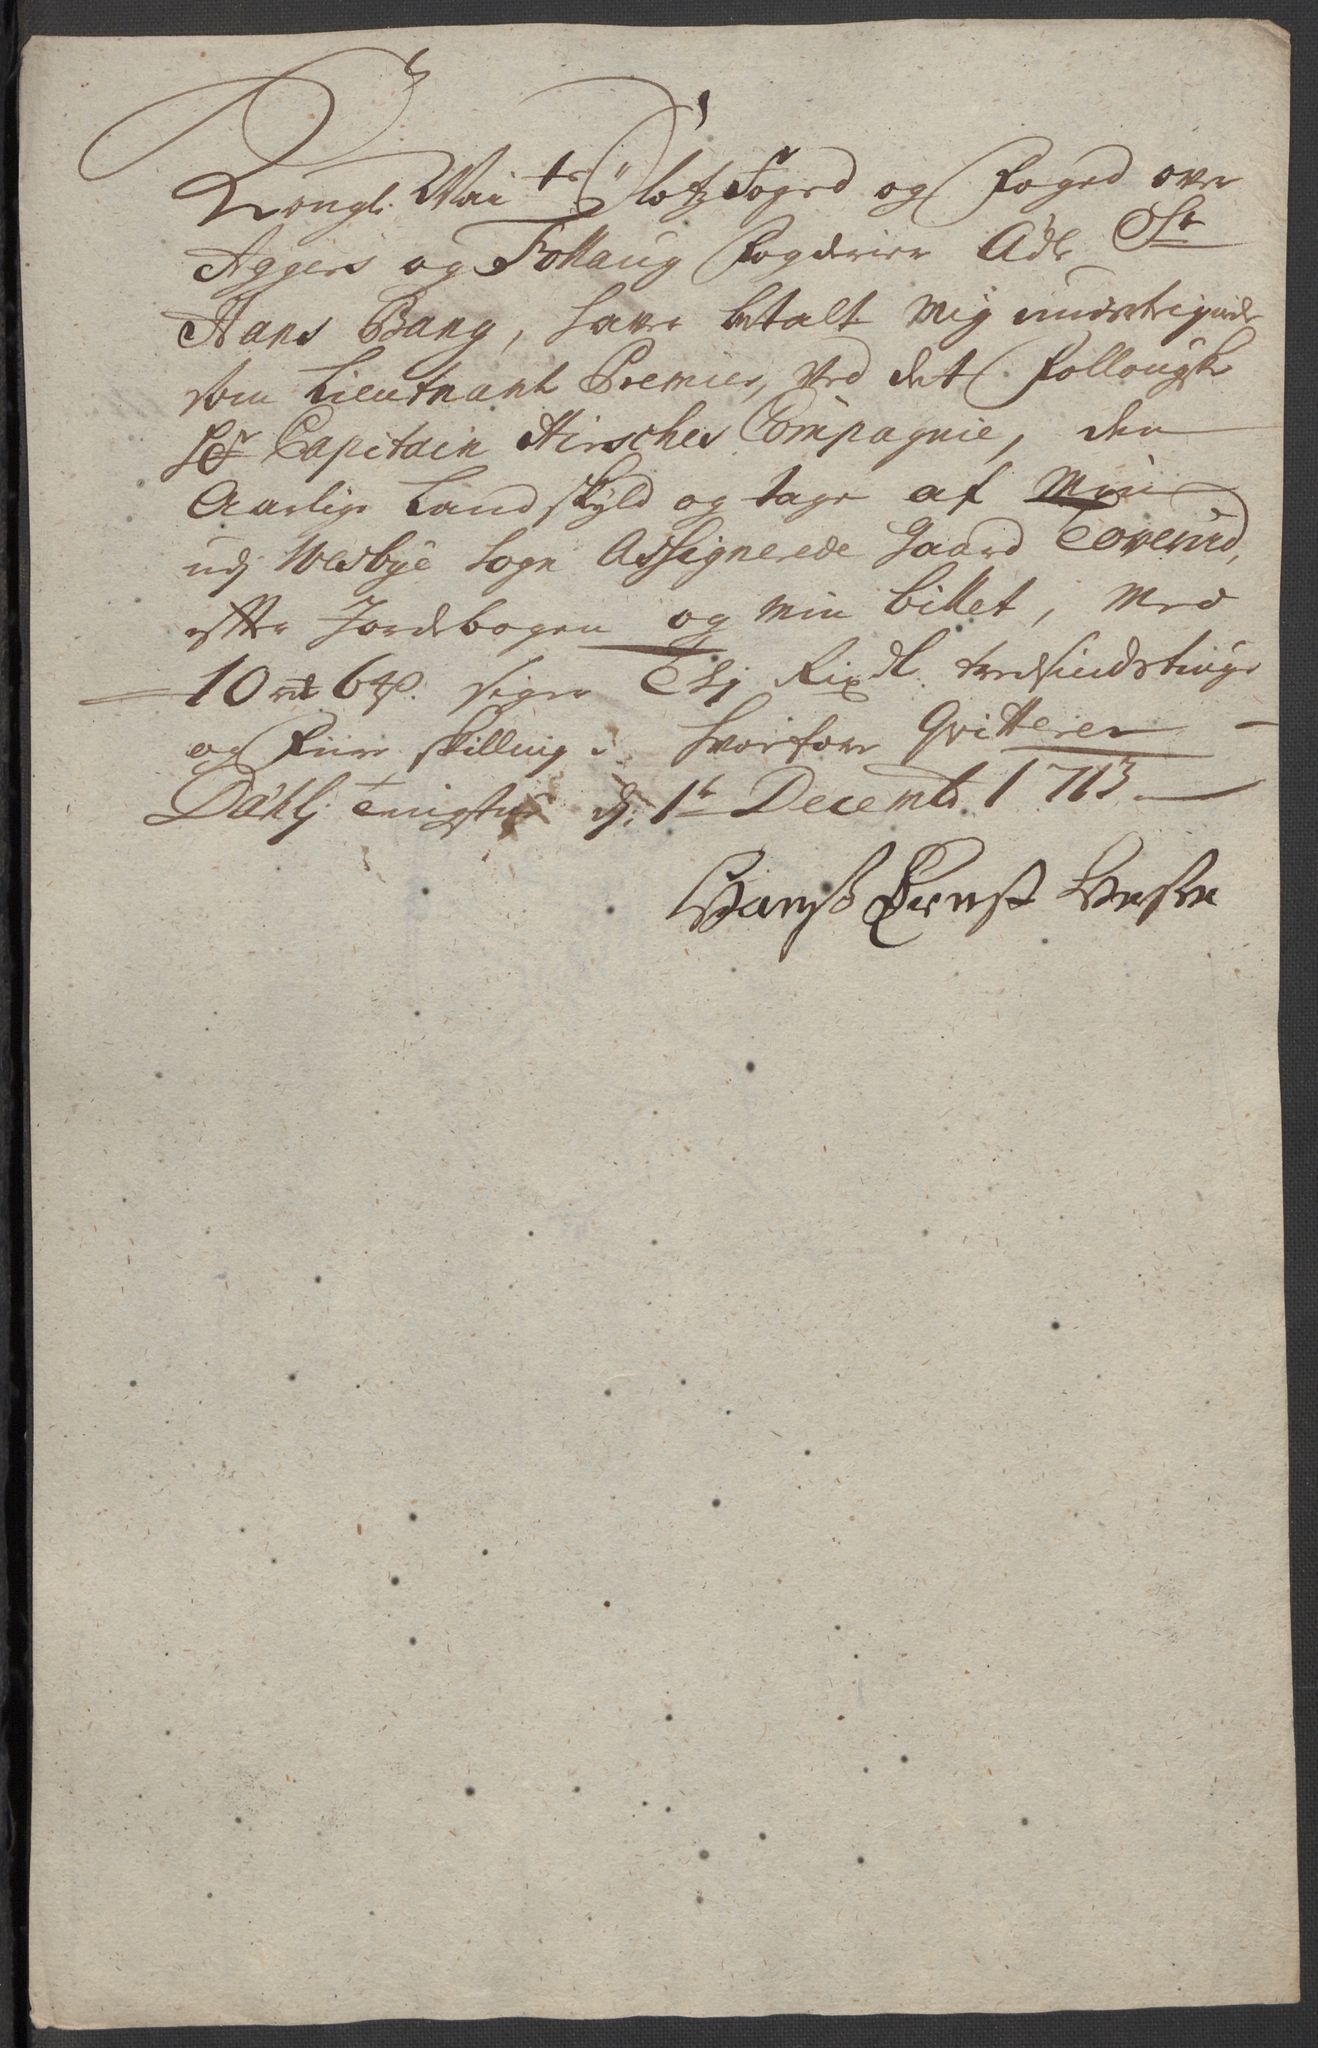 Kongl: Mai<sup>ts</sup> Slotz Foged og Foged over
Aggers og Follaug Fogderier Ædle S<sup>r</sup>
Hans Bang, haver betalt Mig underskrefne
som Lieutnant Premier, ved det Follougske
H<sup>r</sup> Capitain Hirsches Compagnie, den
Aarlige Landskyld og tage af Min
udj Wesbye Sogn Assignerede Gaard Toverud,
efter Jordebogen og min billet, Med
10 rd 64 s. siger Thj Rixdl. tredsindstiuge
og Fiire skilling. hvorfore Qvitterer
Dahlj d: 1<sup>t</sup> Decembr. 1713
Hanß Ernst